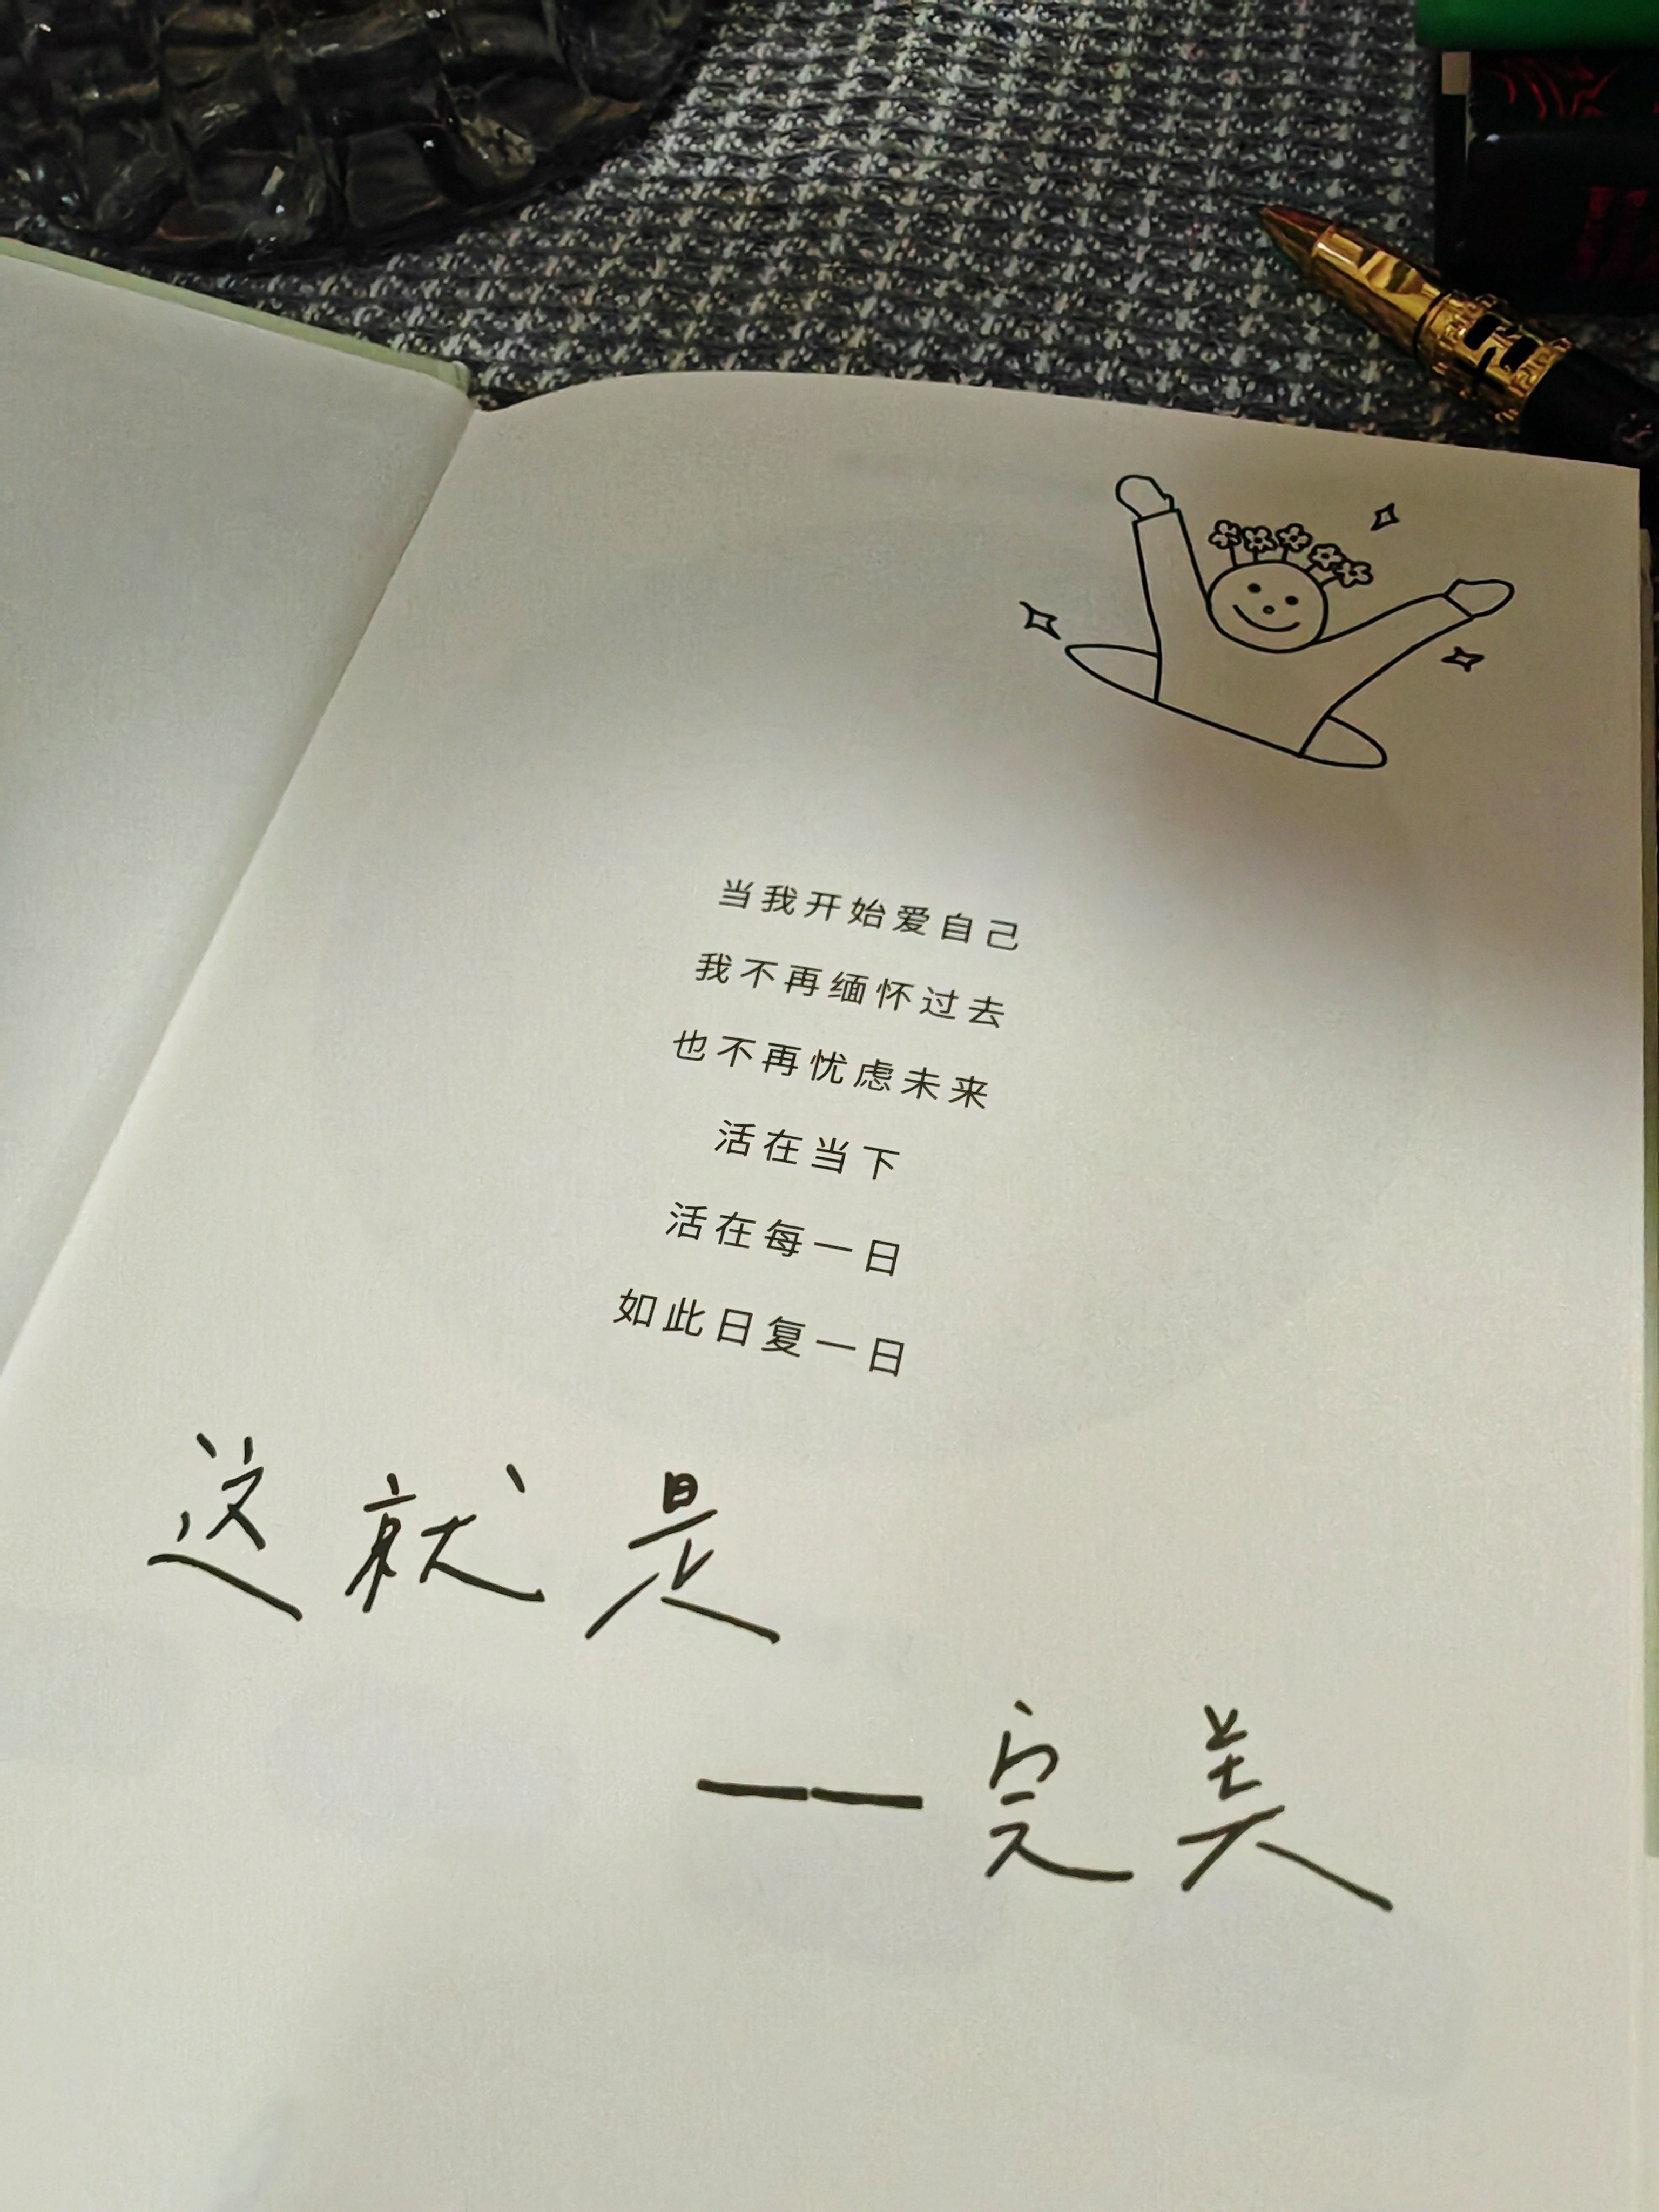 当我开始爱自己
我不再缅怀过去
也不再忧虑未来
活在当下
活在每一日
如此日复一日
这就是
——完美